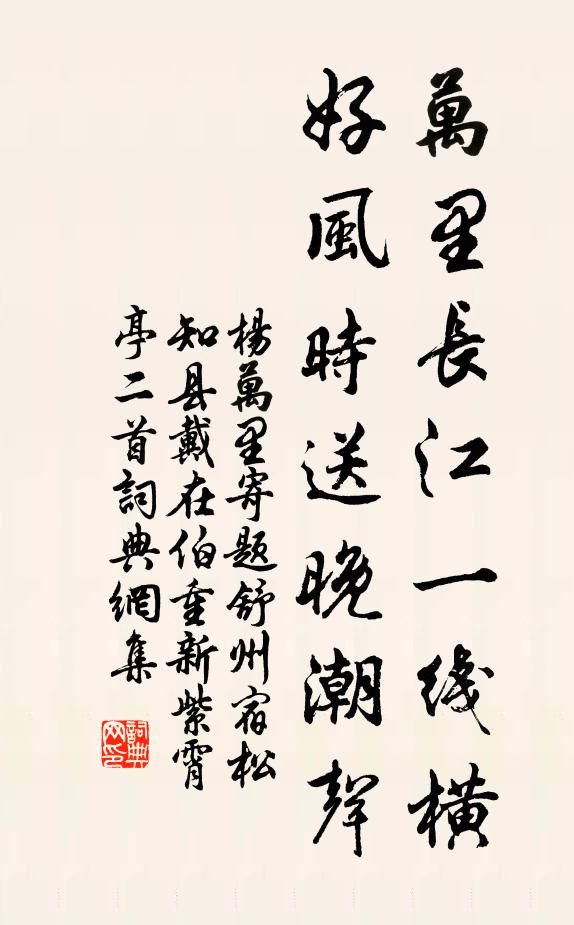 萬里長江一线橫
好風時送晚潮聲
楊萬里寄题舒州宿松
知县戴在伯重新紫霄
亭二首詞典網集
詞典
网印